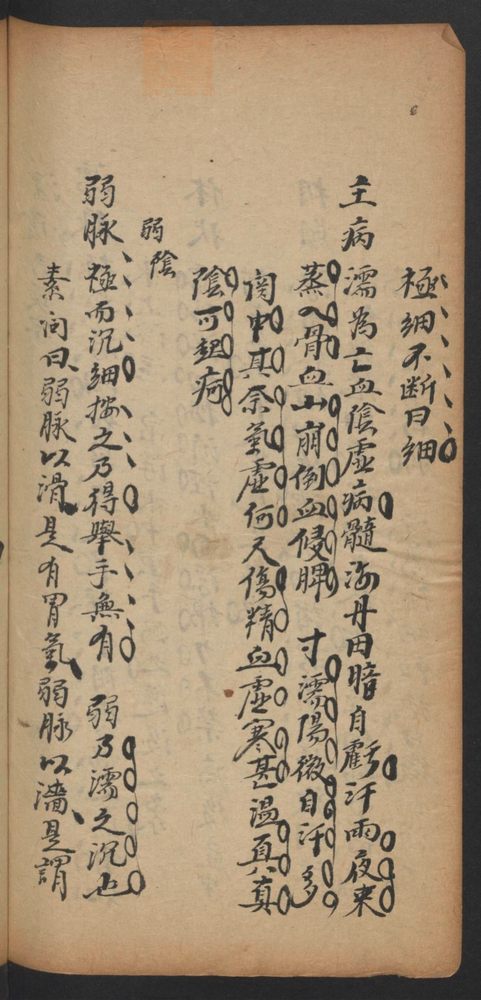 極細不断曰細
主病 濡為亡血陰虛病髓海丹田暗自虧汗雨夜來
蒸入骨血山崩倒血侵脾 寸濡陽微自汗多
関中其奈氣虛何尺傷精血虛寒甚温真真
陰可起疴
弱陰
弱脉 極而沉細按之乃得舉手無有 弱乃濡之沉也
素问曰弱脉以滑是有胃氣弱脉以濇是謂